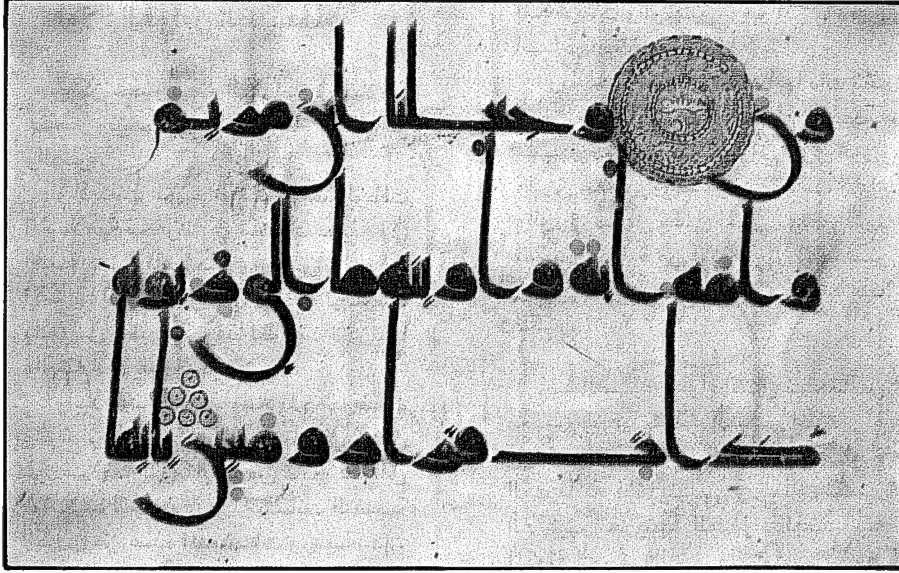 ون وجعلنا ابن مريم
وامه اية واوينهما الى ربوة
ذات قرار ومعين يا